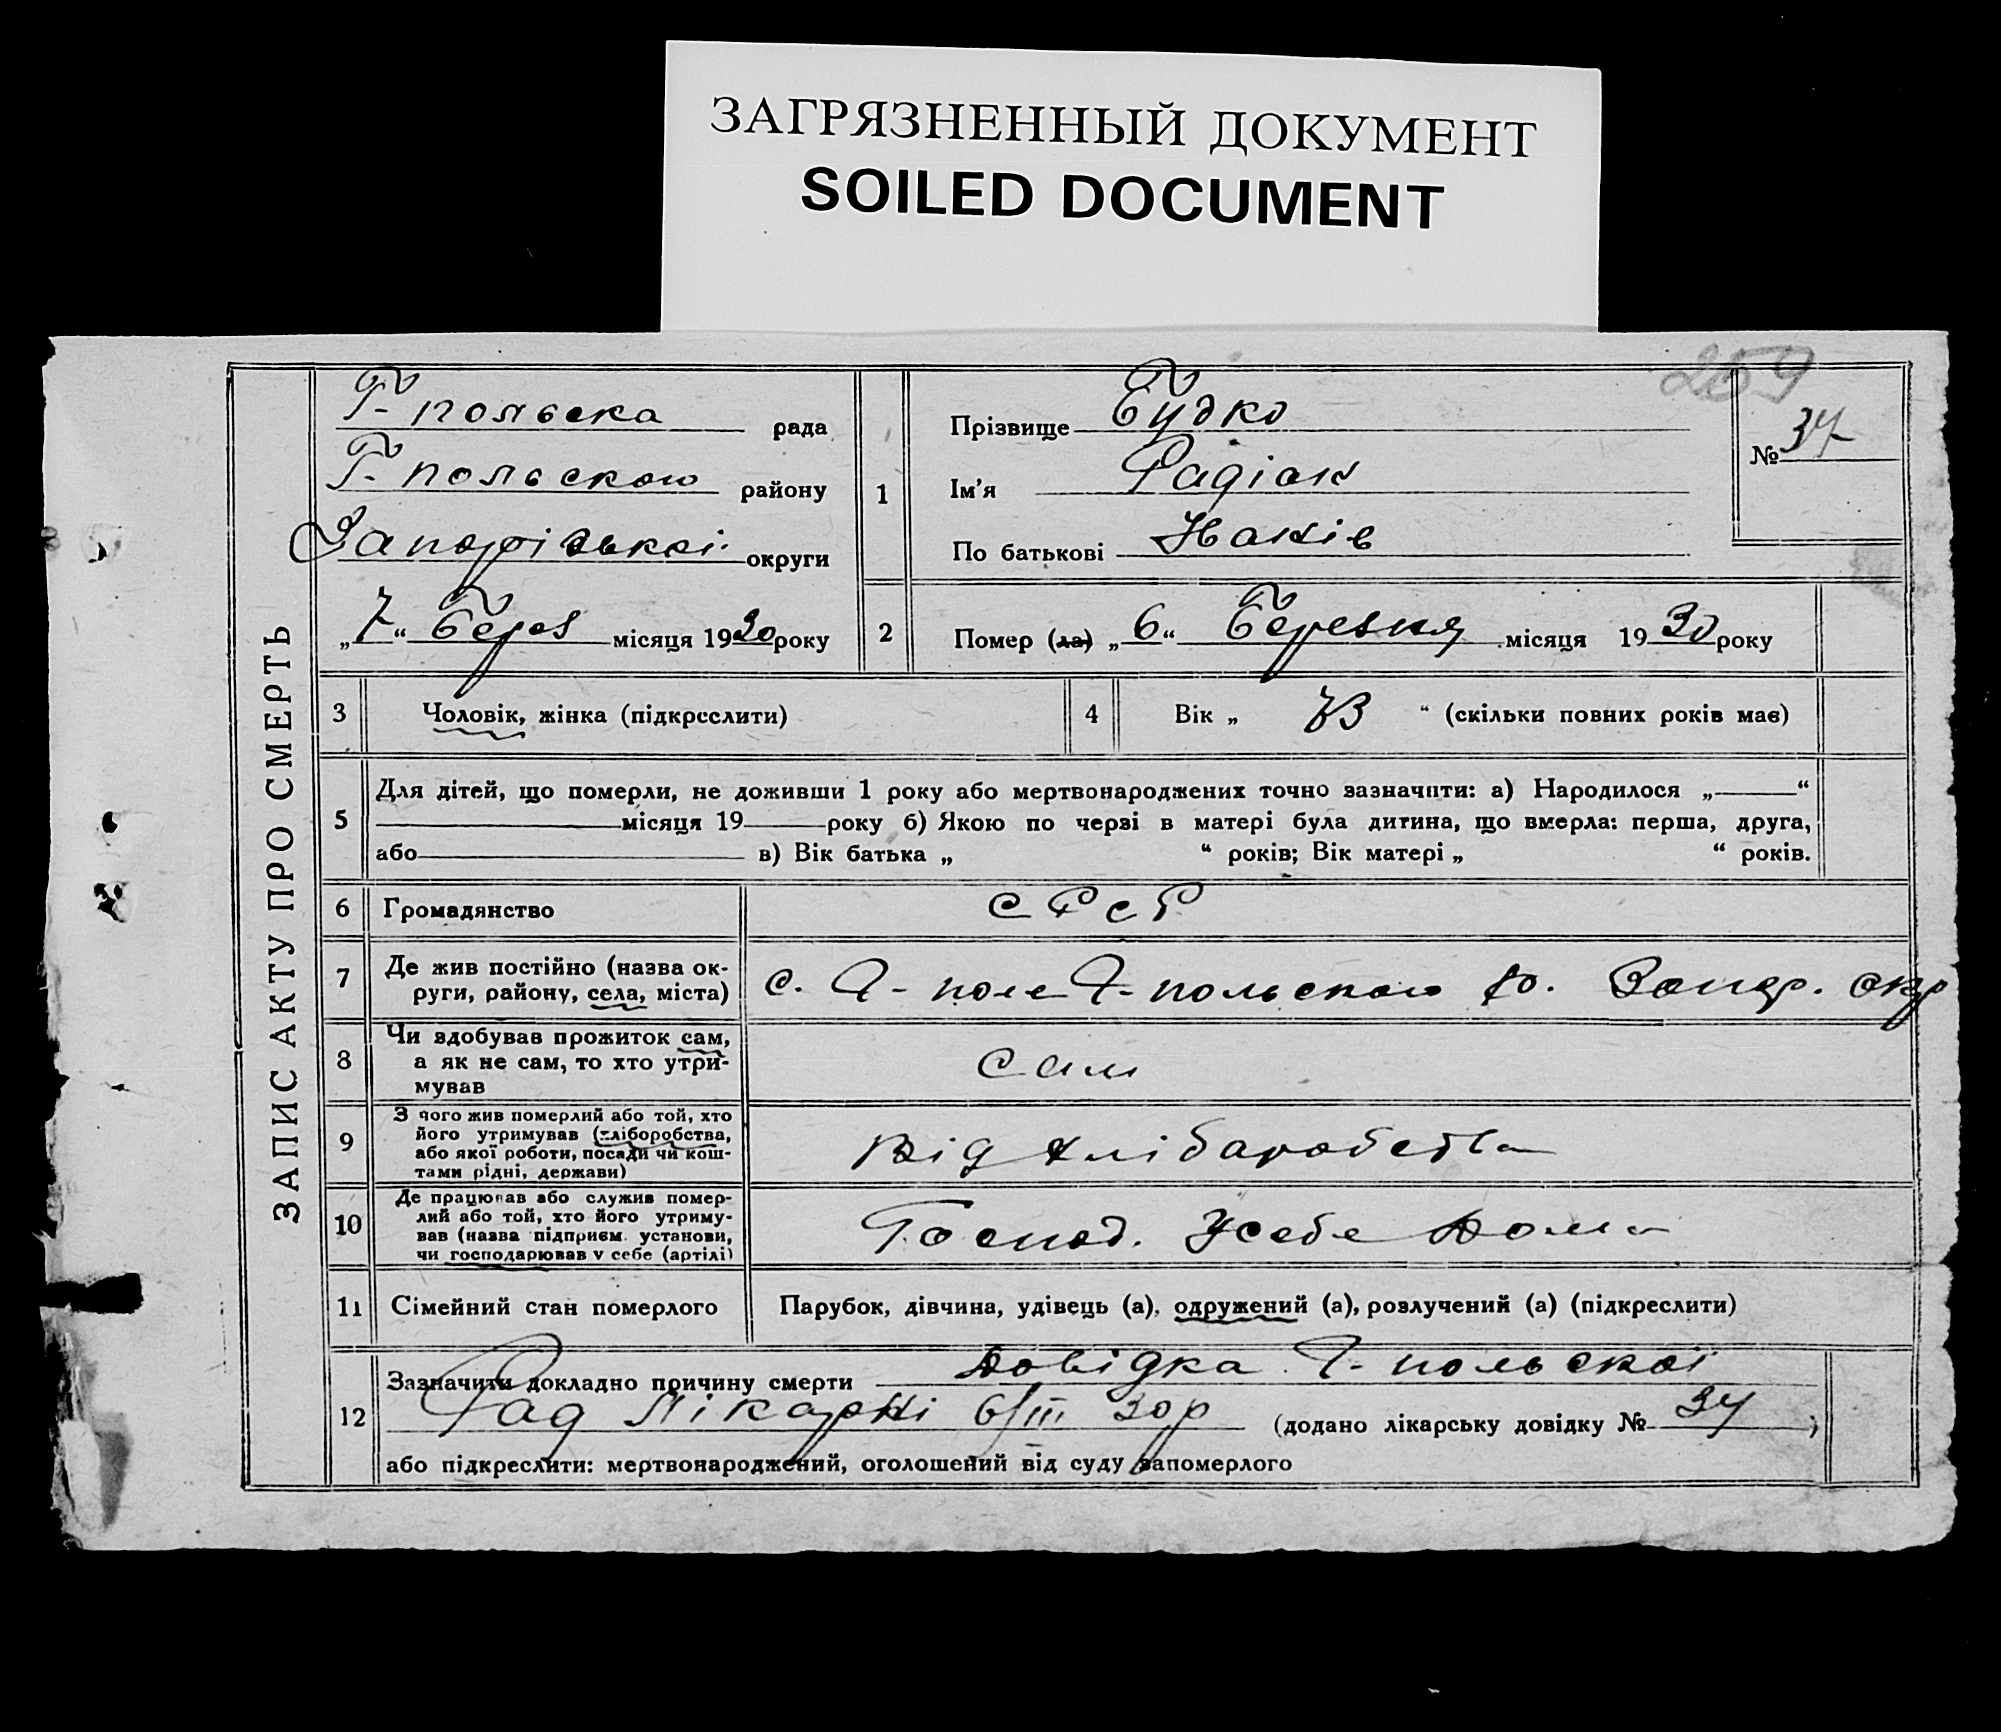 ЗАГРЯЗНЕННЫЙ ДОКУМЕНТ
SOILED DOCUMENT
259
ЗАПИС АКТУ ПРО СМЕРТЬ
Г-польска рада
Г-польского району
Запорізької округи
„7“ Берез місяця 1930 року
1
Прізвище Будко
Ім'я Радіон
По батькові
№ 37
2 Помер (ла) „6“ Березня місяця 1930 року
3 Чоловік, жінка (підкреслити)
4 Вік „73“ (скільки повних років має)
5 Для дітей, що померли, не доживши 1 року або мертвонароджених точно зазначити: а) Народилося „ “
місяця 19 року б) Якою по черзі в матері була дитина, що вмерла: перша, друга,
або в) Вік батька „ “ років; Вік матері „ “ років.
6 Громадянство СРСР
7 Де жив постійно (назва ок-
руги, району, села, міста)
с. Г-поле Г-польского р. Запор. окр
8 Чи здобував прожиток сам,
а як не сам, то хто утри-
мував
сам
9 З чого жив померлий або той, хто
його утримував (хліборобства,
або якої роботи, посади чи кош-
тами рідні, держави)
від хліборобства
10 Де працював або служив помер-
лий або той, хто його утриму-
вав (назва підприєм. установи,
чи господарював у себе (артілі)
Господ. Усебе Дома
11 Сімейний стан померлого Парубок, дівчина, удівець (а), одружений (а), розлучений (а) (підкреслити)
12 Зазначити докладно причину смерти Довідка Г-польскої
Рад Лікарні 6/III 30р (додано лікарську довідку № 34)
або підкреслити: мертвонароджений, оголошений від суду запомерлого